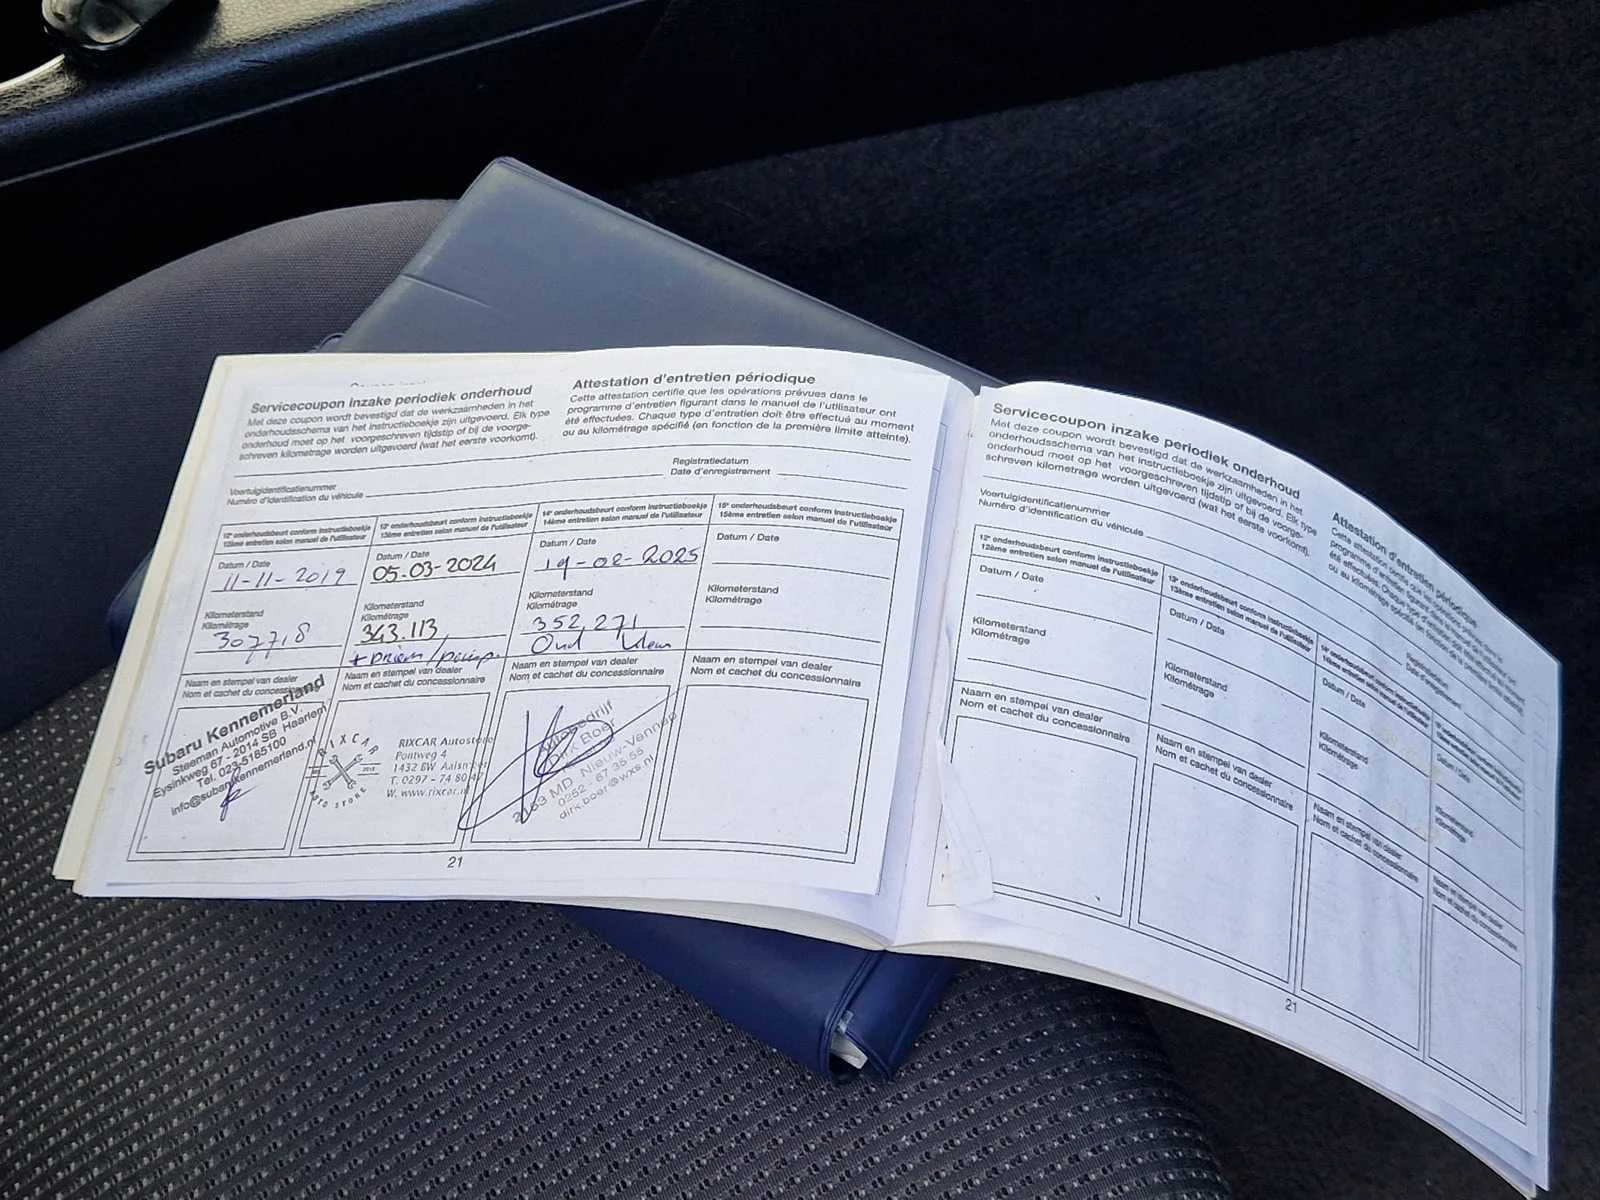 Servicecoupon inzake periodiek onderhoud
Met deze coupon wordt bevestigd dat de werkzaamheden in het
onderhoudsschema van het instructieboekje zijn uitgevoerd. Elk type
onderhoud moet op het voorgeschreven tijdstip of bij de voorge-
schreven kilometrage worden uitgevoerd (wat het eerste voorkomt).
Attestation d'entretien périodique
Cette attestation certifie que les opérations prévues dans le
programme d'entretien figurant dans le manuel de l'utilisateur ont
été effectuées. Chaque type d'entretien doit être effectué au moment
ou au kilométrage spécifié (en fonction de la première limite atteinte).
Registratiedatum
Date d'enregistrement
Voertuigidentificatienummer
Numéro d'identification du véhicule
12e onderhoudsbeurt conform instructieboekje
12ème entretien selon manuel de l'utilisateur
Datum / Date
11-11-2019
Kilometerstand
Kilométrage
307718
Naam en stempel van dealer
Nom et cachet du concessionnaire
Subaru Kennemerland
Steeman Automotive B.V.
Eysinkweg 67 - 2014 SB Haarlem
Tel. 023-5185100
info@subarukennemerland.nl
13e onderhoudsbeurt conform instructieboekje
13ème entretien selon manuel de l'utilisateur
Datum / Date
05-03-2024
Kilometerstand
Kilométrage
343.113
Naam en stempel van dealer
Nom et cachet du concessionnaire
RIXCAR
AUTO STORE
RIXCAR Autostore
Pontweg 4
1432 EW Aalsmeer
T. 0297 - 74 80
W. www.rixcar.nl
14e onderhoudsbeurt conform instructieboekje
14ème entretien selon manuel de l'utilisateur
Datum / Date
19-02-2025
Kilometerstand
Kilométrage
352,271
Naam en stempel van dealer
Nom et cachet du concessionnaire
Autobedrijf
Dirk Boer
2153 MD Nieuw-Vennep
0252 - 67 35 55
dirk.boer@wxs.nl
15e onderhoudsbeurt conform instructieboekje
15ème entretien selon manuel de l'utilisateur
Datum / Date
Kilometerstand
Kilométrage
Naam en stempel van dealer
Nom et cachet du concessionnaire
21
Servicecoupon inzake periodiek onderhoud
Met deze coupon wordt bevestigd dat de werkzaamheden in het
onderhoudsschema van het instructieboekje zijn uitgevoerd. Elk type
onderhoud moet op het voorgeschreven tijdstip of bij de voorge-
schreven kilometrage worden uitgevoerd (wat het eerste voorkomt).
Attestation d'entretien périodique
Voertuigidentificatienummer
Numéro d'identification du véhicule
Registratiedatum
Date d'enregistrement
12e onderhoudsbeurt conform instructieboekje
12ème entretien selon manuel de l'utilisateur
Datum / Date
Kilometerstand
Kilométrage
Naam en stempel van dealer
Nom et cachet du concessionnaire
13e onderhoudsbeurt conform instructieboekje
13ème entretien selon manuel de l'utilisateur
Datum / Date
Kilometerstand
Kilométrage
Naam en stempel van dealer
Nom et cachet du concessionnaire
14e onderhoudsbeurt conform instructieboekje
14ème entretien selon manuel de l'utilisateur
Datum / Date
Kilometerstand
Kilométrage
Naam en stempel van dealer
Nom et cachet du concessionnaire
Datum / Date
Kilometerstand
Kilométrage
Naam en stempel van dealer
Nom et cachet du concessionnaire
21